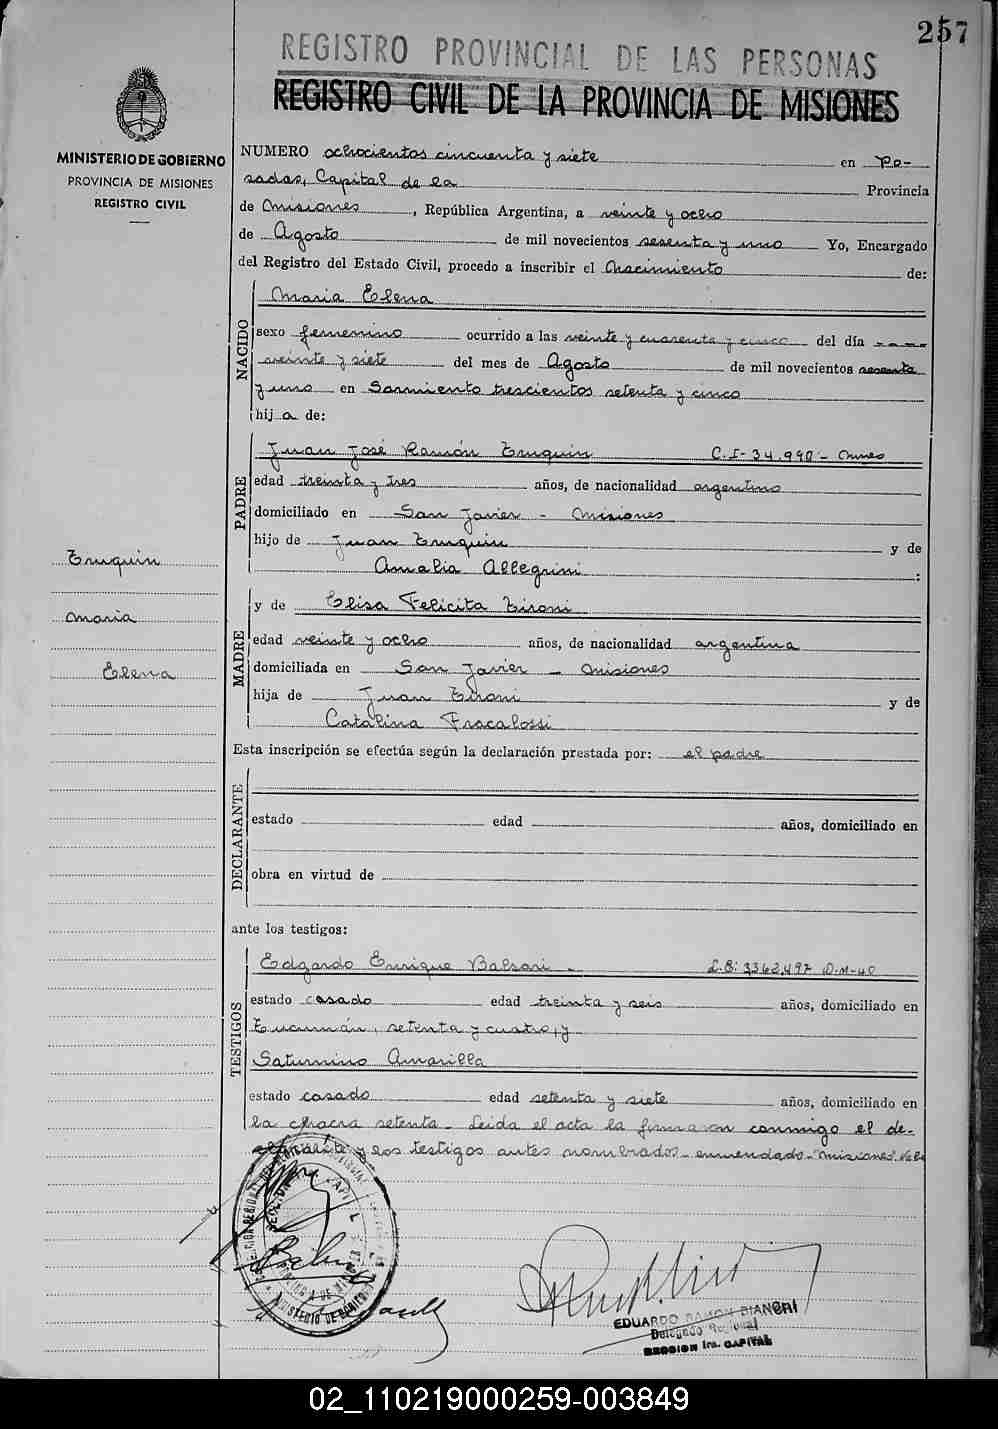 257
REGISTRO PROVINCIAL DE LAS PERSONAS
REGISTRO CIVIL DE LA PROVINCIA DE MISIONES
MINISTERIO DE GOBIERNO
PROVINCIA DE MISIONES
REGISTRO CIVIL
NUMERO ochocientos cincuenta y siete en Po-
sadas, Capital de la Provincia
de Misiones, República Argentina, a veinte y ocho
de Agosto de mil novecientos sesenta y uno Yo, Encargado
del Registro del Estado Civil, procedo a inscribir el Nacimiento de:
NACIDO
Maria Elena
sexo femenino ocurrido a las veinte y cuarenta y cinco del día ----
veinte y siete del mes de Agosto de mil novecientos sesenta
y uno en Sarmiento trescientos setenta y cinco
hij a de:
PADRE
Juan José Ramón Truquin C.I- 34.990 - Mnes
edad treinta y tres años, de nacionalidad argentino
domiciliado en San Javier - Misiones
hijo de Juan Truquin y de
Amalia Allegrini :
MADRE
y de Elisa Felicita Tironi
edad veinte y ocho años, de nacionalidad argentina
domiciliada en San Javier - Misiones
hija de Juan Tironi y de
Catalina Fracalossi
Truquin
Maria
Elena
Esta inscripción se efectúa según la declaración prestada por: el padre
DECLARANTE
estado edad años, domiciliado en
obra en virtud de
ante los testigos:
TESTIGOS
Edgardo Enrique Balsari - 3363.497 D.M-40
estado casado edad treinta y seis años, domiciliado en
Tucumán, setenta y cuatro, y
Saturnino Amarilla
estado casado edad setenta y siete años, domiciliado en
la chacra setenta. Leida el acta la firmaron conmigo el de-
clarante y los testigos antes nombrados - enmendado - "Misiones". Vale
EDUARDO RAMON BIANCHI
Delegado Regional
SECCION 1ra. CAPITAL
02_110219000259-003849